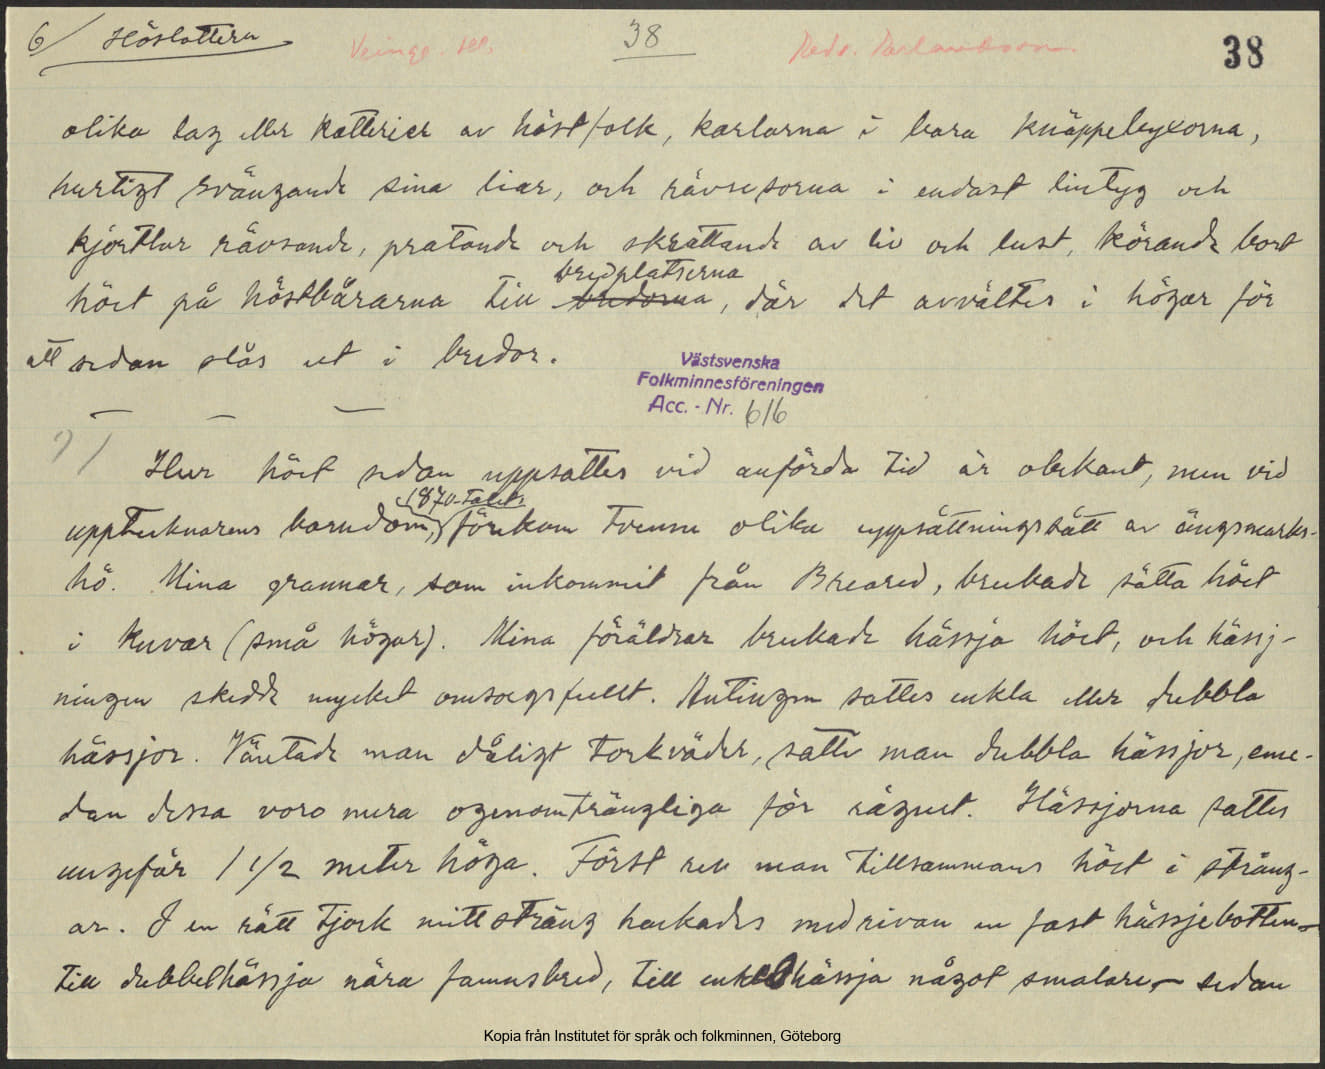 6/ Höslottern
Veinge. Hl.
38
38
olika lag eller kotterier av höstfolk, karlarna i bara knäppebyxorna,
hurtigt svängande sina liar, och rävsesorna i endast lintyg och
kjortlar rävsande, pratande och skrattande av liv och lust, körande bort
bredplatserna
höet på höstbårarna till bredorna, där det avvältes i högar för
att sedan slås ut i bredor.
Västsvenska
Folkminnesföreningen
Acc. - Nr. 616
7/ Hur höet sedan uppsattes vid anförda tid är obekant, men vid
1870-talet
upptecknarens barndom, förekom tvenne olika uppsättningssätt av ängsmarks-
hö. Mina grannar, som inkommit från Breared, brukade sätta höet
i kuvar (små högar). Mina föräldrar brukade hässja höet, och hässj-
ningen skedde mycket omsorgsfullt. Antingen sattes enkla eller dubbla
hässjor. Väntade man dåligt torkväder, satte man dubbla hässjor, eme-
dan dessa voro mera ogenomträngliga för rägnet. Hässjorna sattes
ungefär 1 1/2 meter höga. Först rev man tillsammans höet i sträng-
ar. I en rätt tjock mittsträng hackades med rivan en fast hässjebotten -
till dubbelhässja nära famnsbred, till enkelhässja något smalare - sedan
Kopia från Institutet för språk och folkminnen, Göteborg